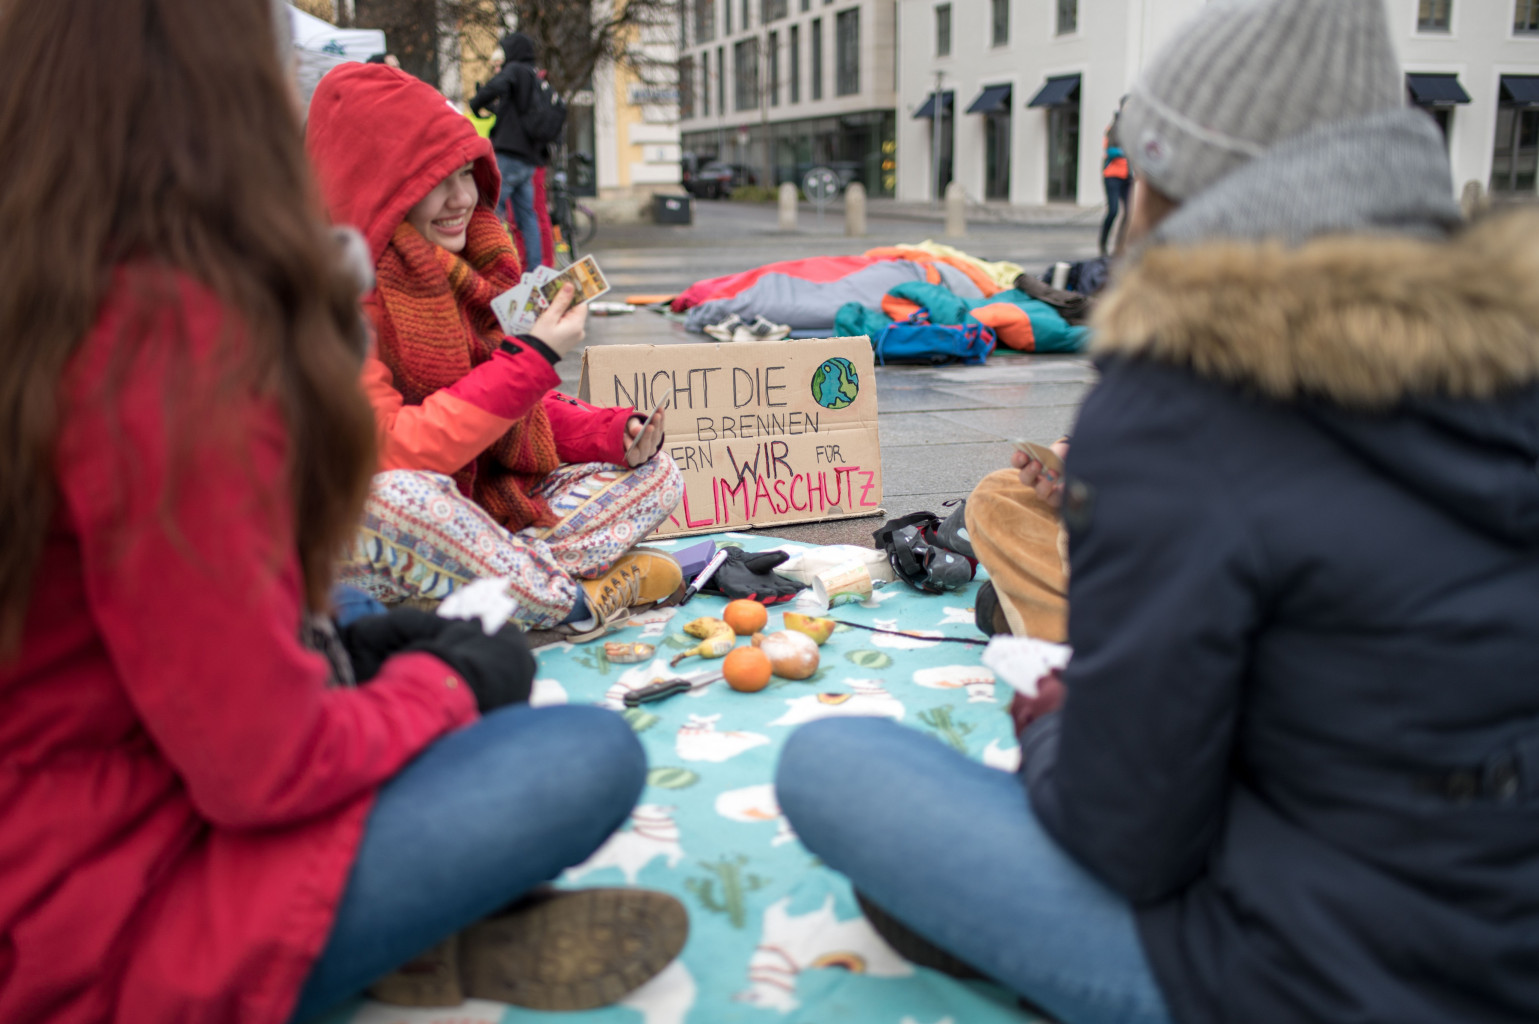 NICHT DIE
BRENNEN
ERN WIR FÜR
KLIMASCHUTZ